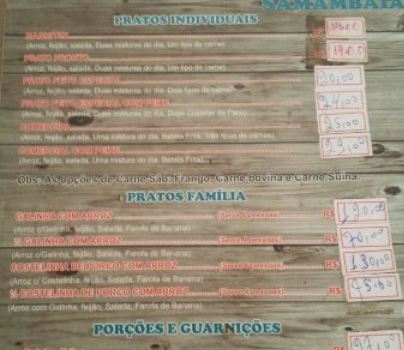 SAMAMBAIA
PRATOS INDIVIDUAIS
MARMITEX
(Arroz, feijão, salada, Duas misturas do dia, Um tipo de carne)
PRATO PRONTO 19,00
(Arroz, feijão, salada, Duas misturas do dia, Um tipo de carne)
PRATO FEITO ESPECIAL 20,00
(Arroz, feijão, salada, Duas misturas do dia, Dois tipos de carne)
PRATO FEITO ESPECIAL COM PEIXE 24,00
(Arroz, feijão, salada, Duas misturas do dia, Duas Postas de Peixe)
COMERCIAL 25,00
(Arroz, feijão, salada, Uma mistura do dia, Batata Frita, Três tipos de carnes)
COMERCIAL COM PEIXE 29,00
(Arroz, feijão, salada, Uma mistura do dia, Batata Frita,
Obs: As opções de Carne São: Frango, Carne bovina e Carne Suína.
PRATOS FAMÍLIA
GALINHA COM ARROZ (Serve 4 pessoas) R$ 120,00
(Arroz c/Galinha, feijão, Salada, Farofa de Banana)
½ GALINHA COM ARROZ R$ 70,00
(Arroz c/Galinha, feijão, Salada, Farofa de Banana)
COSTELINHA DE PORCO COM ARROZ R$ 130,00
(Arroz c/Costelinha, feijão, Salada, Farofa de Banana)
½ COSTELINHA DE PORCO COM ARROZ R$ 75,00
(Arroz com Galinha, feijão, Salada, Farofa de Banana)
PORÇÕES E GUARNIÇÕES